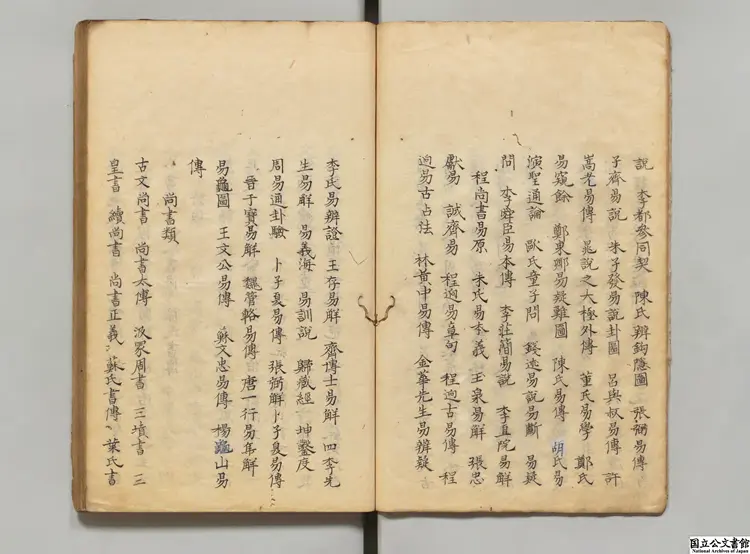 說　李都參同契　陳氏辨鈎隱圖　張弼易傳
子齊易說　朱子發易說卦圖　呂與叔易傳　許
嵩老易傳　晁說之太極外傳　董氏易學　鄭氏
易窺餘　鄭東卿易疑難圖　陳氏易傳　胡氏易
演聖通論　歐氏童子問　錢述易說易斷　易疑
問　李舜臣易本傳　李莊簡易說　李直院易解
程尚書易原　朱氏易本義　玉泉易解　張忠
獻易　誠齊易　程迥易章句　程迥古易傳　程
迥易古占法　林黃中易傳　金華先生易辨疑
李氏易辨證　王存易解　齊傳士易解　四李先
生易解　易義海　易訓說　歸藏經　坤鑿度
周易通卦驗　卜子夏易傳　張弼解卜子夏易傳
晉于寶易解　魏管輅易傳　唐一行易解
易龜圖　王文公易傳　蘇文忠易傳　楊龜山易
傳
尚書類
古文尚書　尚書太傳　汲冢周書　三墳書　三
皇書　續尚書　尚書正義　蘇氏書傳　葉氏書
国立公文書館
National Archives of Japan